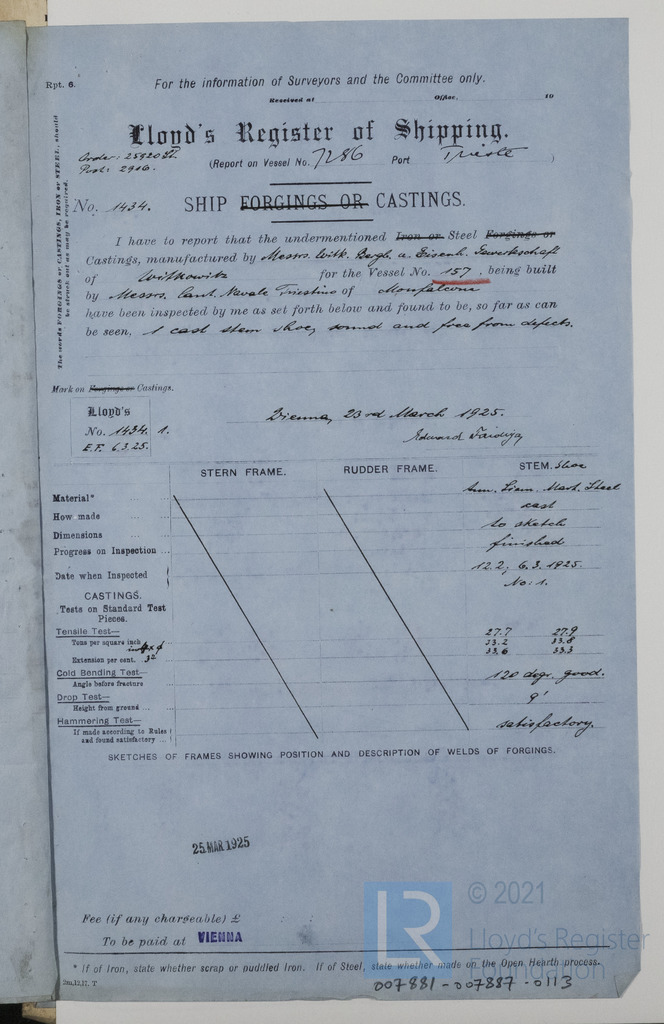 Rpt. 6.
For the information of Surveyors and the Committee only.
Received at Office, 19
Lloyd's Register of Shipping.
Order: 25920
Post: 2906.
(Report on Vessel No. 7286 Port Trieste )
The words FORGINGS or CASTINGS, IRON or STEEL, should be struck out as may be required.
No. 1434.
SHIP FORGINGS OR CASTINGS.
I have to report that the undermentioned Iron or Steel Forgings or
Castings, manufactured by Messrs. Witk. Bergb. u. Eisenh. Gewerkschaft
of Witkowitz for the Vessel No. 157, being built
by Messrs. Cant. Navale Triestino of Monfalcone
have been inspected by me as set forth below and found to be, so far as can
be seen, 1 cast stem shoe, sound and free from defects.
Mark on Forgings or Castings.
Lloyd's
No. 1434. 1.
E.F. 6.3.25.
Vienna, 23rd March 1925.
Edward
STERN FRAME. RUDDER FRAME. STEM. Shoe
Material* Siem. Mart. Steel
How made cast
Dimensions to sketch
Progress on Inspection finished
Date when Inspected 12.2; 6.3.1925.
No: 1.
CASTINGS.
Tests on Standard Test
Pieces.
Tensile Test— 27.7 27.9
Tons per square inch 33.2 33.8
Extension per cent. 33.6 33.3
Cold Bending Test— 120 degr. good.
Angle before fracture
Drop Test— 9'
Height from ground
Hammering Test— satisfactory.
If made according to Rules
and found satisfactory
SKETCHES OF FRAMES SHOWING POSITION AND DESCRIPTION OF WELDS OF FORGINGS.
25 MAR 1925
Fee (if any chargeable) £ : :
To be paid at VIENNA
* If of Iron, state whether scrap or puddled Iron. If of Steel, state whether made on the Open Hearth process.
© 2021
Lloyd's Register
Foundation
LR
007881-007887-0113